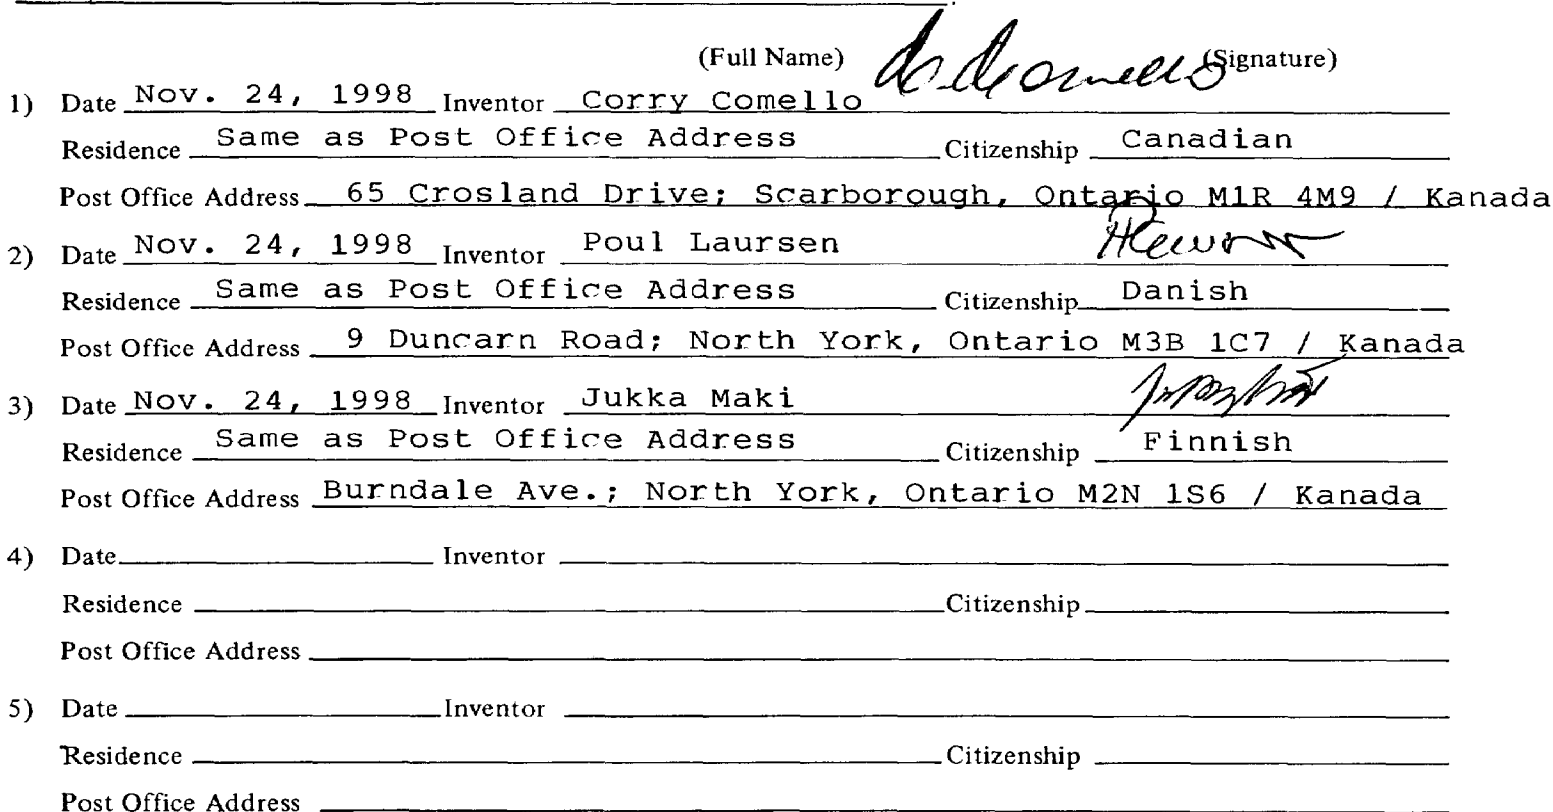 (Full Name) (Signature)
1) Date Nov. 24, 1998 Inventor Corry Comello
Residence Same as Post Office Address Citizenship Canadian
Post Office Address 65 Crosland Drive; Scarborough, Ontario M1R 4M9 / Kanada
2) Date Nov. 24, 1998 Inventor Poul Laursen
Residence Same as Post Office Address Citizenship Danish
Post Office Address 9 Duncarn Road; North York, Ontario M3B 1C7 / Kanada
3) Date Nov. 24, 1998 Inventor Jukka Maki
Residence Same as Post Office Address Citizenship Finnish
Post Office Address Burndale Ave.; North York, Ontario M2N 1S6 / Kanada
4) Date Inventor
Residence Citizenship
Post Office Address
5) Date Inventor
Residence Citizenship
Post Office Address